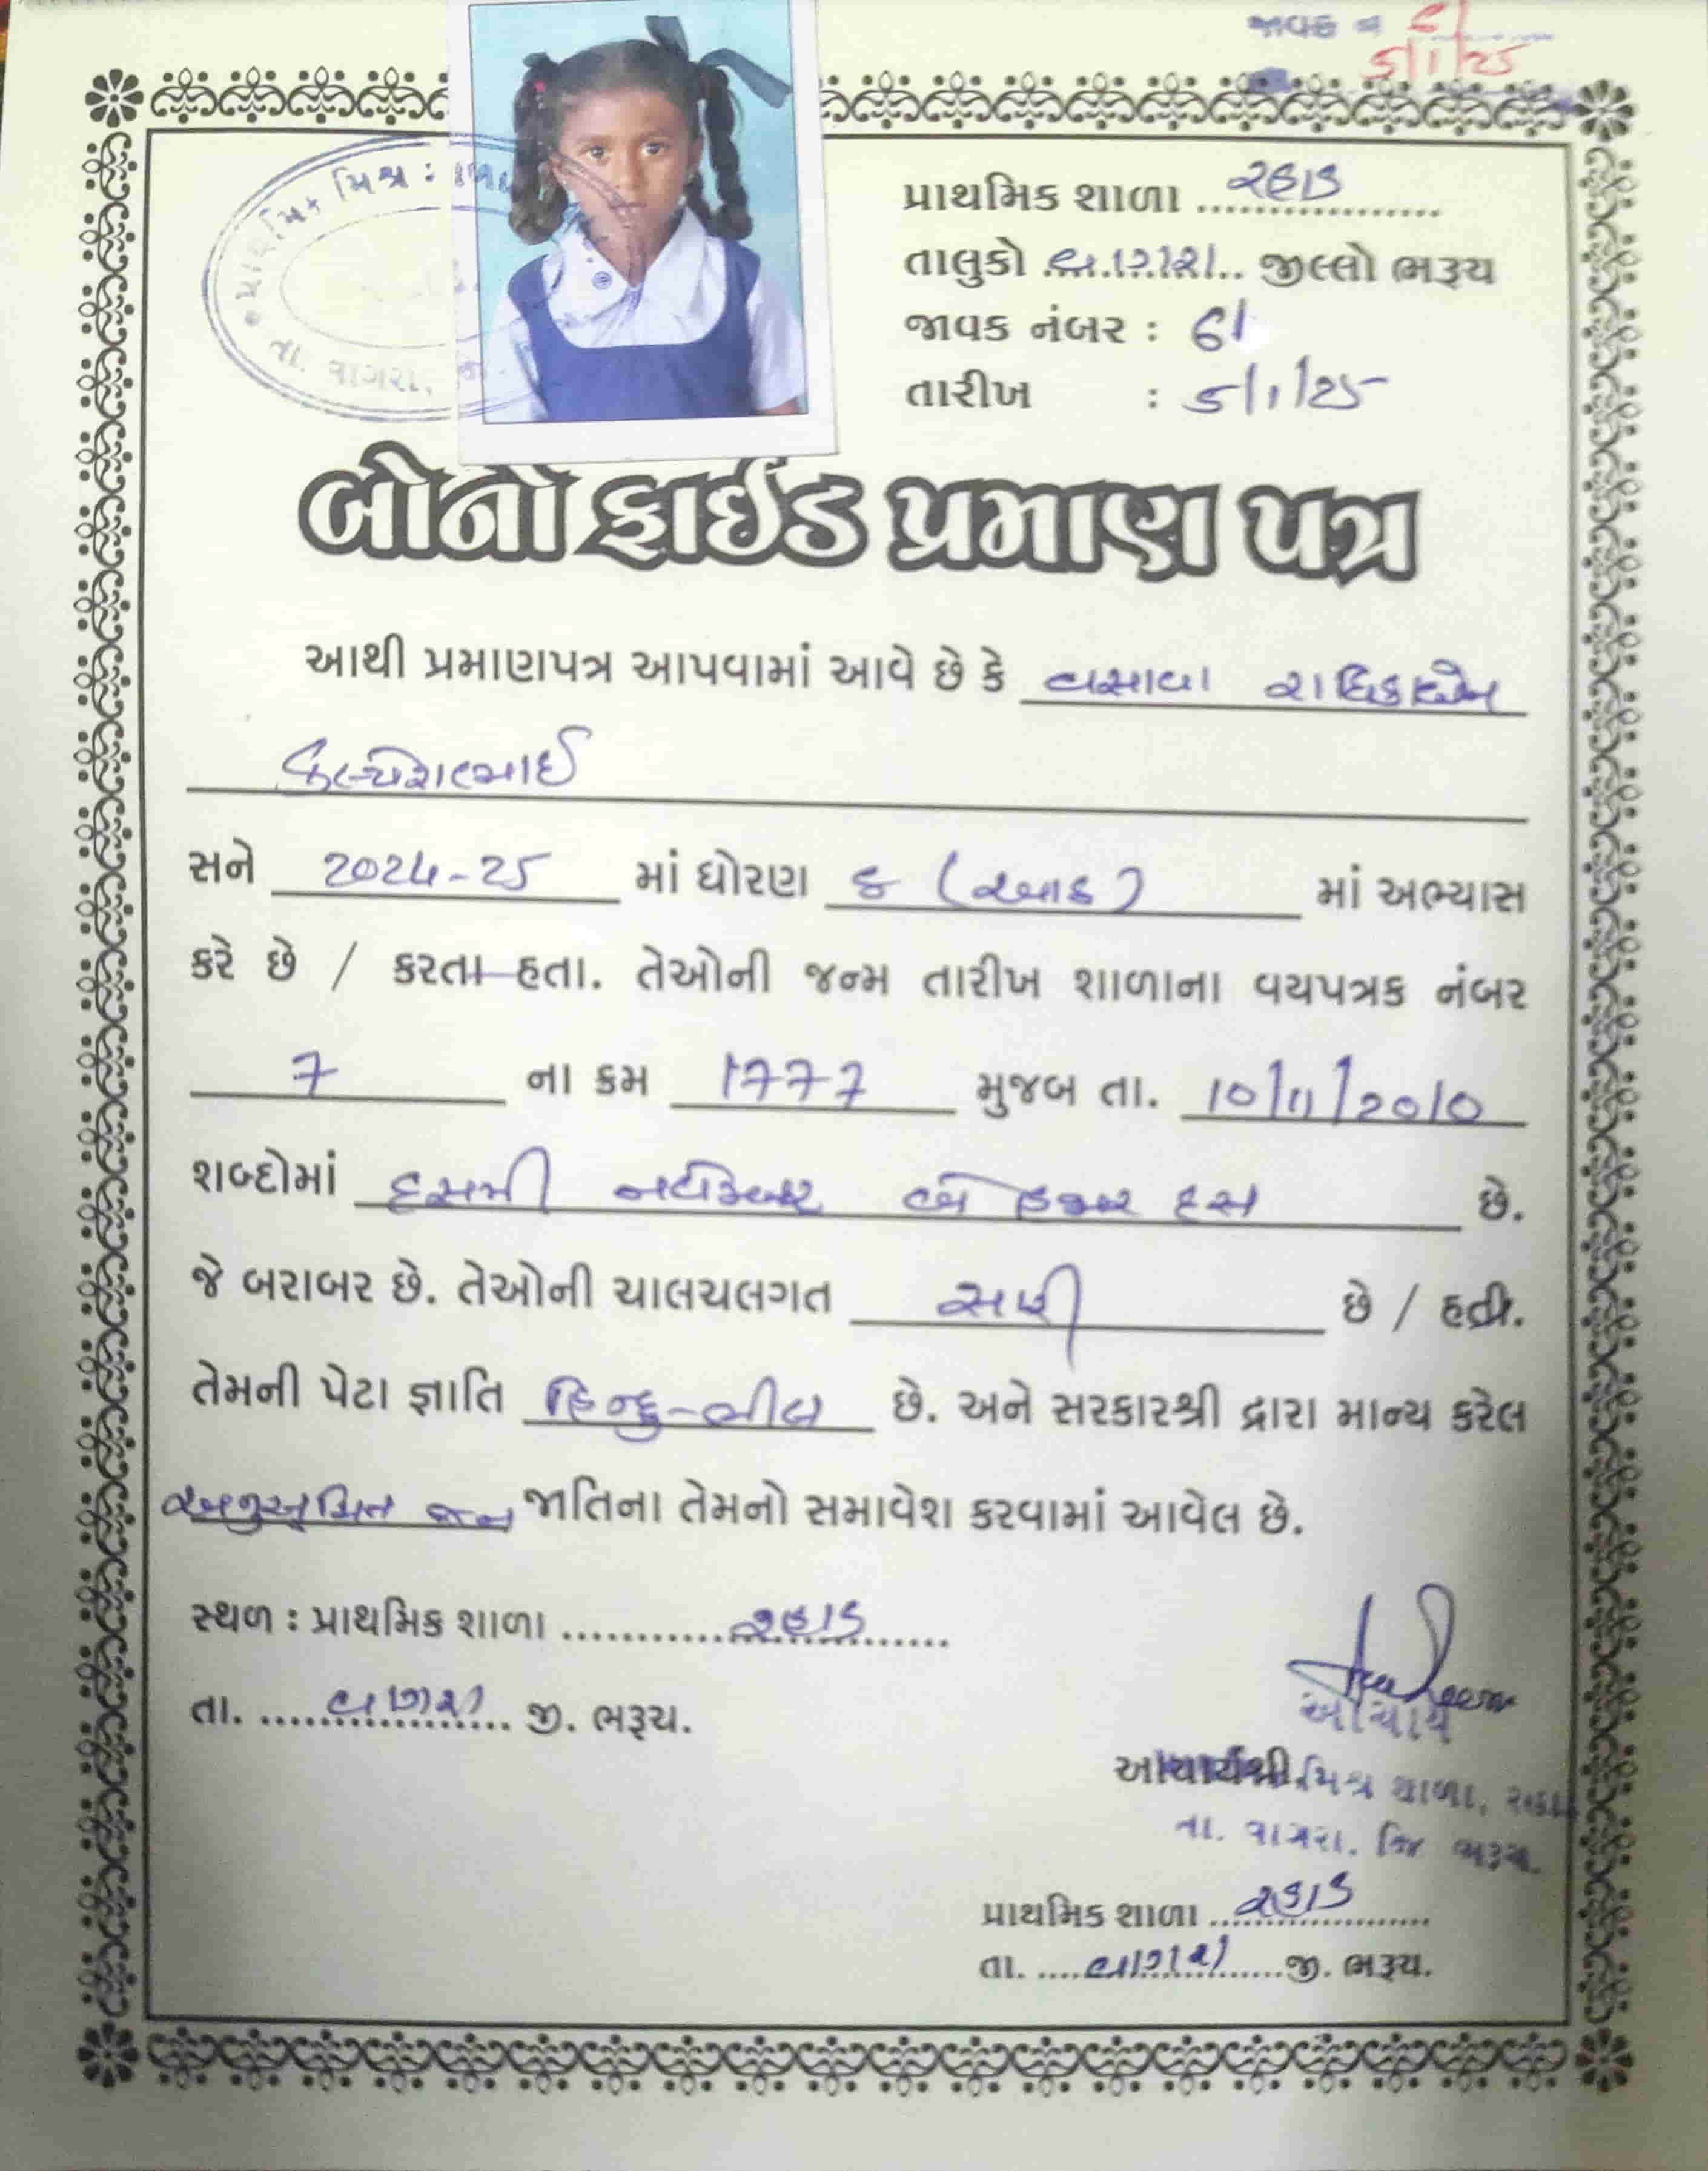 જાવક નં 61
5/1/25
પ્રાથમિક મિશ્ર શાળા
તા. વાગરા,
પ્રાથમિક શાળા રહાડ
તાલુકો વાગરા જીલ્લો ભરૂચ
જાવક નંબર : 61
તારીખ : 5/1/25
બોનોફાઈડ પ્રમાણ પત્ર
આથી પ્રમાણપત્ર આપવામાં આવે છે કે વસાવા રાધિકાબેન
કલ્પેશભાઈ
સને 2024-25 માં ધોરણ ૮ (આઠ) માં અભ્યાસ
કરે છે / કરતા હતા. તેઓની જન્મ તારીખ શાળાના વયપત્રક નંબર
7 ના ક્રમ 1777 મુજબ તા. 10/11/2010
શબ્દોમાં દસમી નવેમ્બર બે હજાર દસ છે.
જે બરાબર છે. તેઓની ચાલચલગત સારી છે / હતી.
તેમની પેટા જ્ઞાતિ હિન્દુ-ભીલ છે. અને સરકારશ્રી દ્વારા માન્ય કરેલ
અનુસૂચિત જન જાતિના તેમનો સમાવેશ કરવામાં આવેલ છે.
સ્થળ : પ્રાથમિક શાળા રહાડ
તા. વાગરા જી. ભરૂચ.
આચાર્ય
આચાર્યશ્રી, મિશ્ર શાળા, રહાડ
તા. વાગરા. જિ ભરૂચ.
પ્રાથમિક શાળા રહાડ
તા. વાગરા જી. ભરૂચ.